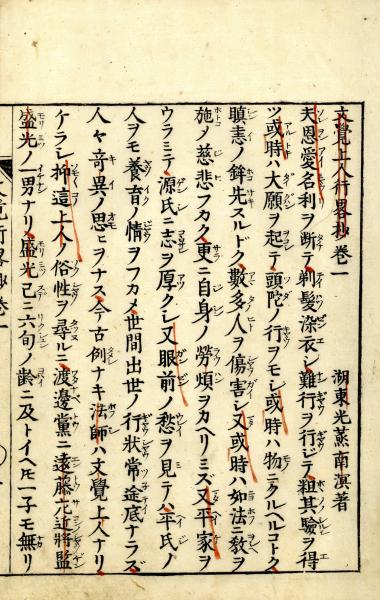 文覺上人行畧抄巻一
湖東光蕉南溟著
夫恩愛名利ヲ断テ剃髪染衣シ難行ヲ行ジテ粗其驗ヲ得
ツ或時ハ大願ヲ起テ頭陀ノ行ヲモレ或時ハ物ニクルヘルコトク
瞋恚ノ鉾先スルドク數多人ヲ傷害シ又或時ハ如法敎ヲ
施メ慈悲フカク更ニ自身ノ勞煩ヲカヘリミズ又平家ヲ
ウラミテ源氏ニ志ヲ厚クシ又眼前ノ愁ヲ見テハ平氏ノ
人ヲモ養育ノ情ヲフカメ世間出世ノ行狀常途底ナラズ
人々竒異ノ思ヒヲナス今古例ナキ法師ハ文覺上人ナリ
ケラシ抑這上人ノ俗性ヲ尋ルニ渡邊黨ニ遠藤左近將監
盛光ノ一男ナリ盛光已ニ六旬ノ齡ニ及トイヘ𪜈一子モ無リ